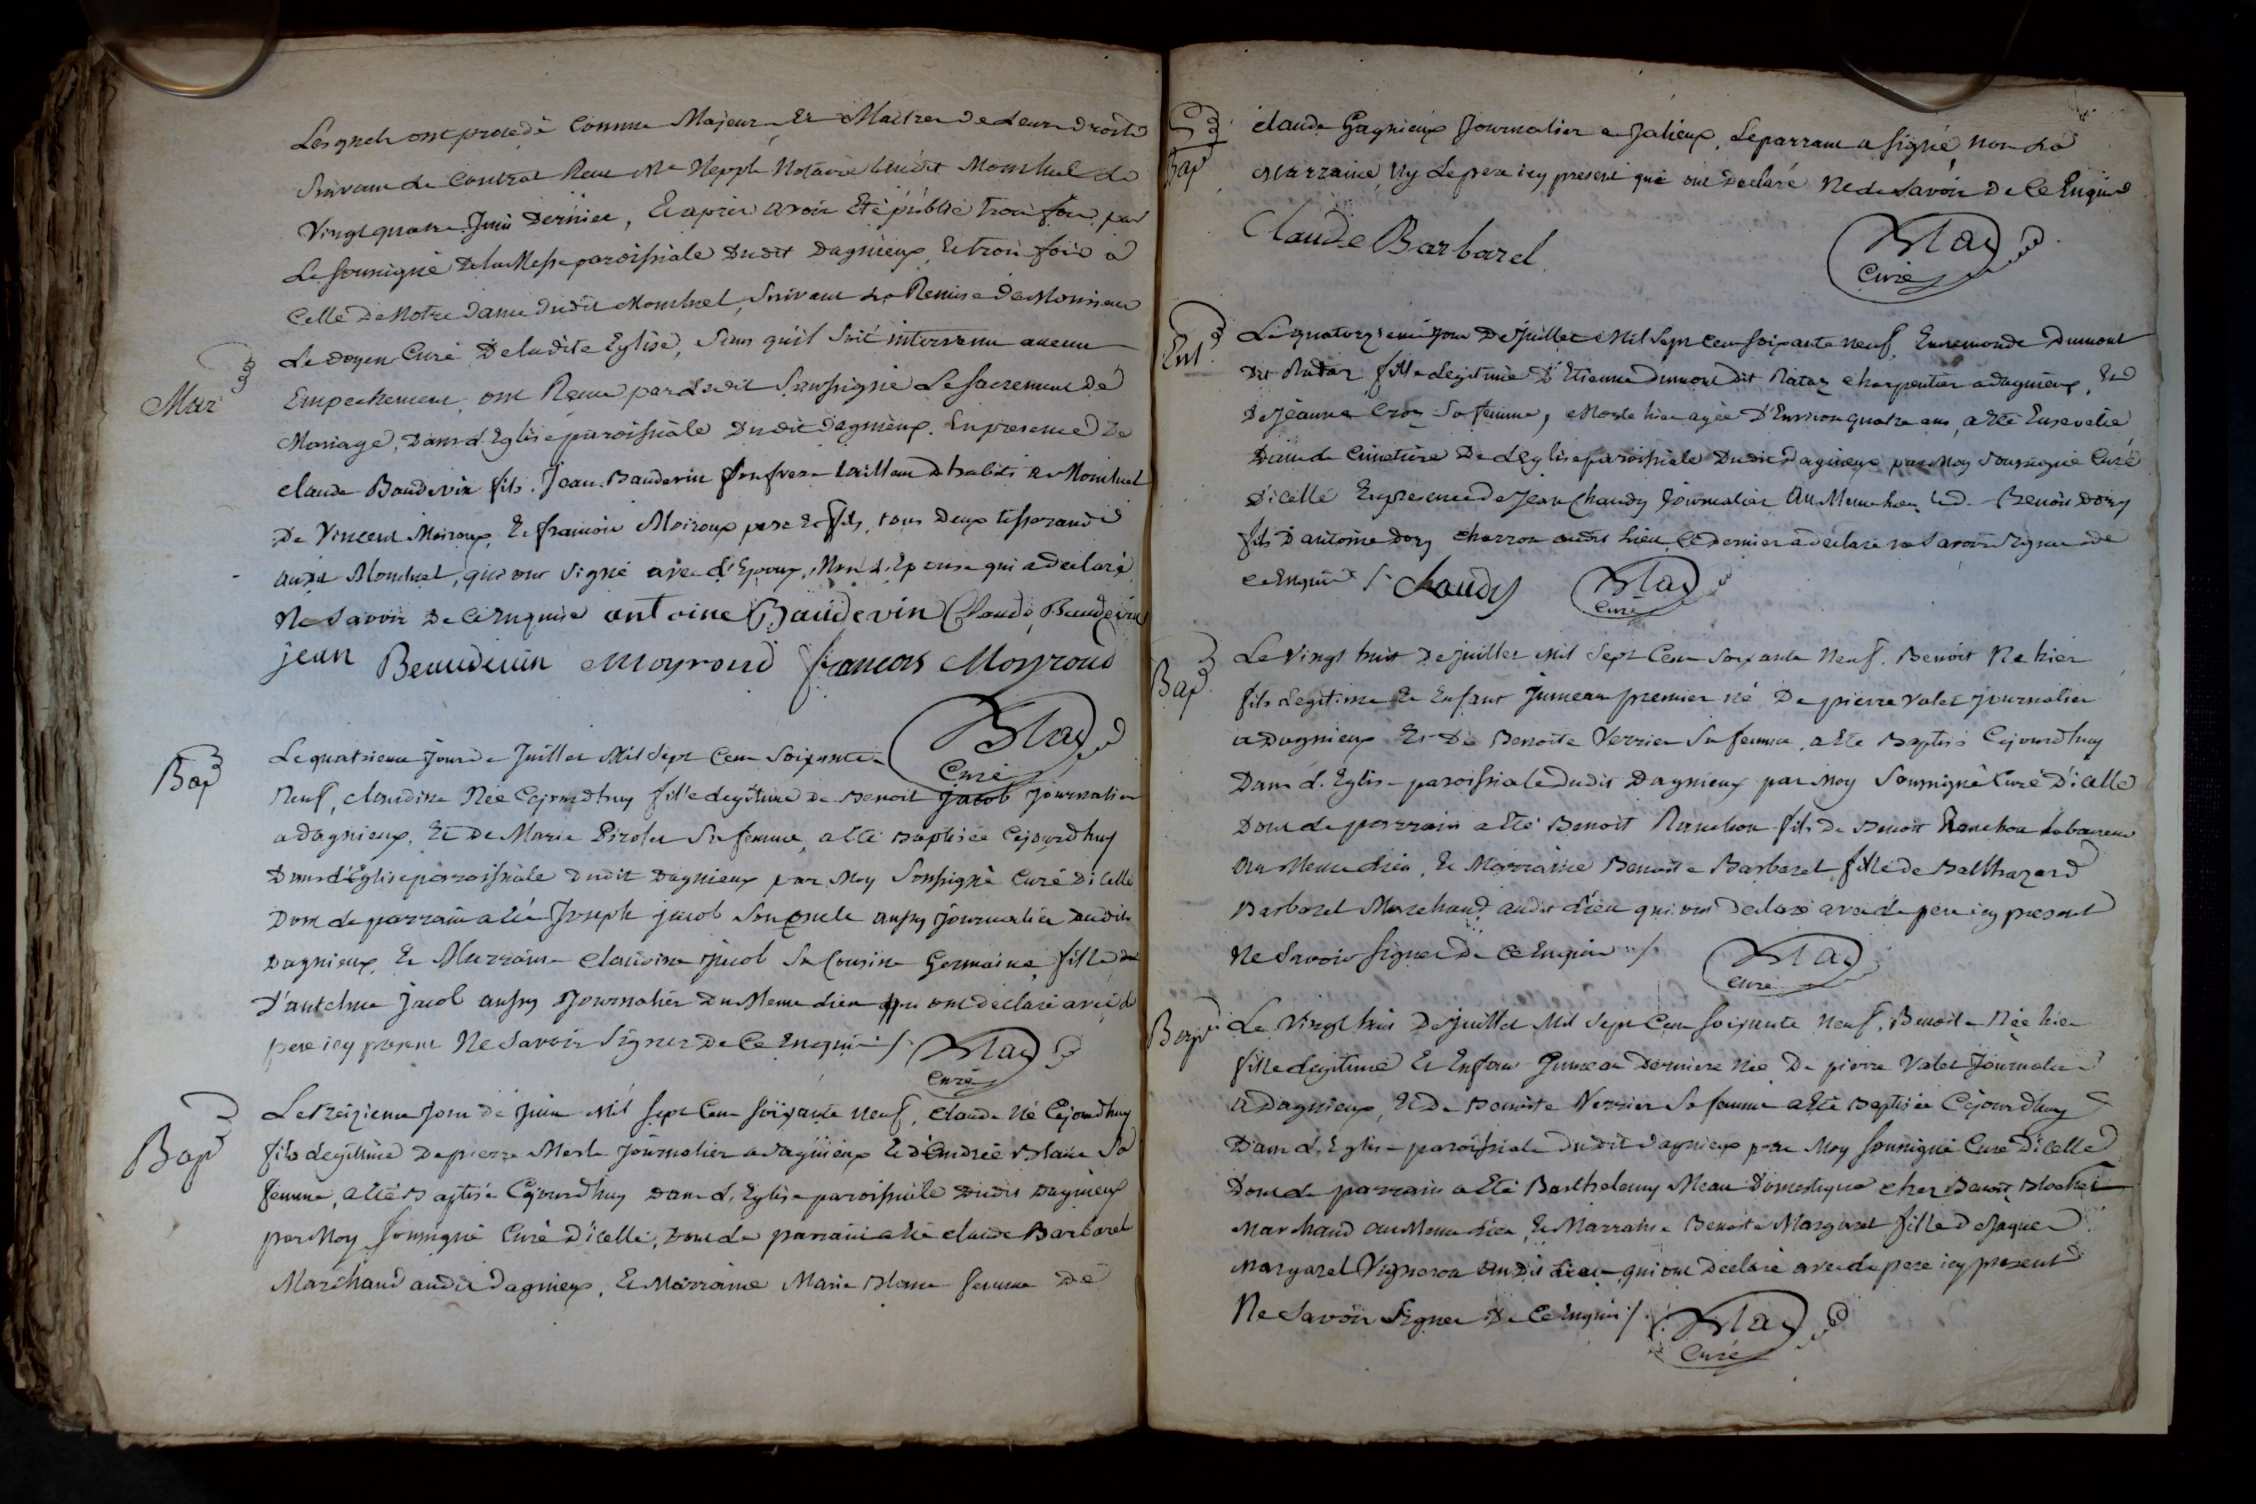 Lesquels ont procedé Comme Majeurs Et Maitres de Leurs droits
Suivant Le Contrat Recu Me Notaire audit Montluel Le
Vingt quatre Juin Dernier, Et aprèr avoir Eté publié trois fois par
Le soussigné De la Messe paroissiale Du dit Dagnieux, Et trois fois à
Celle De Notre Dame du dit Montluel, Suivant La Remise De Monsieur
Le Doyen Curé De ladite Eglise, Sans qu'il Soit intervenu aucun
Mar
Empechement, ont Recu par Le dit Soussigné Le Sacrement de
Mariage, Dans L'Eglise paroissiale Du dit Dagnieux. En presence De
claude Baudevin fils. Jean Baudevin Son frere tailleur D'habits a Montluel
De Vincent Moiroux, Et francois Moiroux pere Et fils, tous Deux tisserands
audit Montluel, qui ont Signé avec L'Epoux, Non L'Epouse qui a declaré
Ne Savoir De Ce Enquise antoine Baudevin Claude Baudevin
jean Beaudevin Moyroud francois Moyroud
Blaz
Curé
Bap
Le quatrieme jour de Juillet Mil Sept Cent Soixante
Neuf, claudine Née Cejourdhuy fille Legitime De Benoit Jacob Journalier
a Dagnieux, Et De Marie Pirolet Sa femme, a Eté Baptisée Cejourdhuy
Dans L'Eglise paroissiale Du dit Dagnieux par Moy Soussigné Curé Dicelle
Dont Le parrain a Eté Joseph jacob Son oncle aussy Journalier Dudit
Dagnieux, Et Marraine claudine jacob Sa Cousine Germaine fille de
d'antelme jacob aussy Journalier Du Meme Lieu qui ont declaré avec Le
pere icy present Ne Savoir Signer De Ce Enquis /.
Blaz
Curé
Bap
Le treizieme jour de Juin Mil Sept Cent Soixante Neuf, Claude Né Cejourdhuy
fils Legitime De pierre Merle Journalier a Dagnieux Et d'Andrée Blanc Sa
femme, a Eté Baptisé Cejourdhuy Dans L'Eglise paroissiale Dudit Dagnieux
par Moy Soussigné Curé Dicelle, Dont Le parrain a Eté claude Barbaret
Marchand audit Dagnieux, Et Marraine Marie Blanc femme De
Bap
claude Gagnieux Journalier a Jalieux, Le parrain a Signé, Non La
Marraine, Ny Le pere icy present qui ont Declaré Ne le Savoir De Ce Enquis
Claude Barbaret
Blaz
Curé
Ent
Le quatorzieme jour De Juillet Mil Sept Cent Soixante Neuf, Ennemonde Dumont
Dit Rataz fille Legitime D'Etienne Dumont Dit Rataz charpentier a Dagnieux, Et
De Jeanne Croz Sa femme, Morte hier agée D'Environ quatre ans, a Eté Ensevelie
Dans Le Cimetiere De L'Eglise paroissiale Du dit Dagnieux par Moy Soussigné Curé
D'icelle En presence De Jean Chaudy Journalier Au Meme Lieu Et de Benoit Dory
fils D'antoine Dory charron audit Lieu, Ce Dernier a declaré ne Savoir Signer De
Ce Enquis /. Chaudy
Blaz
Curé
Bap
Le Vingt huit De Juillet Mil Sept Cent Soixante Neuf. Benoit Né hier
fils Legitime Et Enfant Jumeau premier né De pierre Valet Journalier
a Dagnieux Et De Benoite Verrier Sa femme, a Eté Baptisé Cejourdhuy
Dans L'Eglise paroissiale Dudit Dagnieux par Moy Soussigné Curé D'icelle
Dont Le parrain a Eté Benoit Ranchon fils De Benoit Ranchon Laboureur
Au Meme Lieu, Et Marraine Benoite Barbaret fille De Balthazard
Barbaret Marchand audit Lieu qui ont Declaré avec Le pere icy present
Ne Savoir Signer De Ce Enquis /.
Blaz
Curé
Bap
Le Vingt huit De Juillet Mil Sept Cent Soixante Neuf, Benoite Née hier
fille Legitime Et Enfant Jumeau Derniere Née De pierre Valet Journalier
a Dagnieux, Et De Benoite Verrier Sa femme a Eté Baptisée Cejourdhuy
Dans L'Eglise paroissiale Du dit Dagnieux par Moy Soussigné Curé D'icelle
Dont Le parrain a Eté Barthelemy Meau Domestique chez Benoit Blachet
Marchand Au Meme Lieu, Et Marraine Benoite Margaret fille De Jaques
Margaret Vigneron Audit Lieu qui ont Declaré avec Le pere icy present
Ne Savoir Signer De Ce Enquis /.
Blaz
Curé